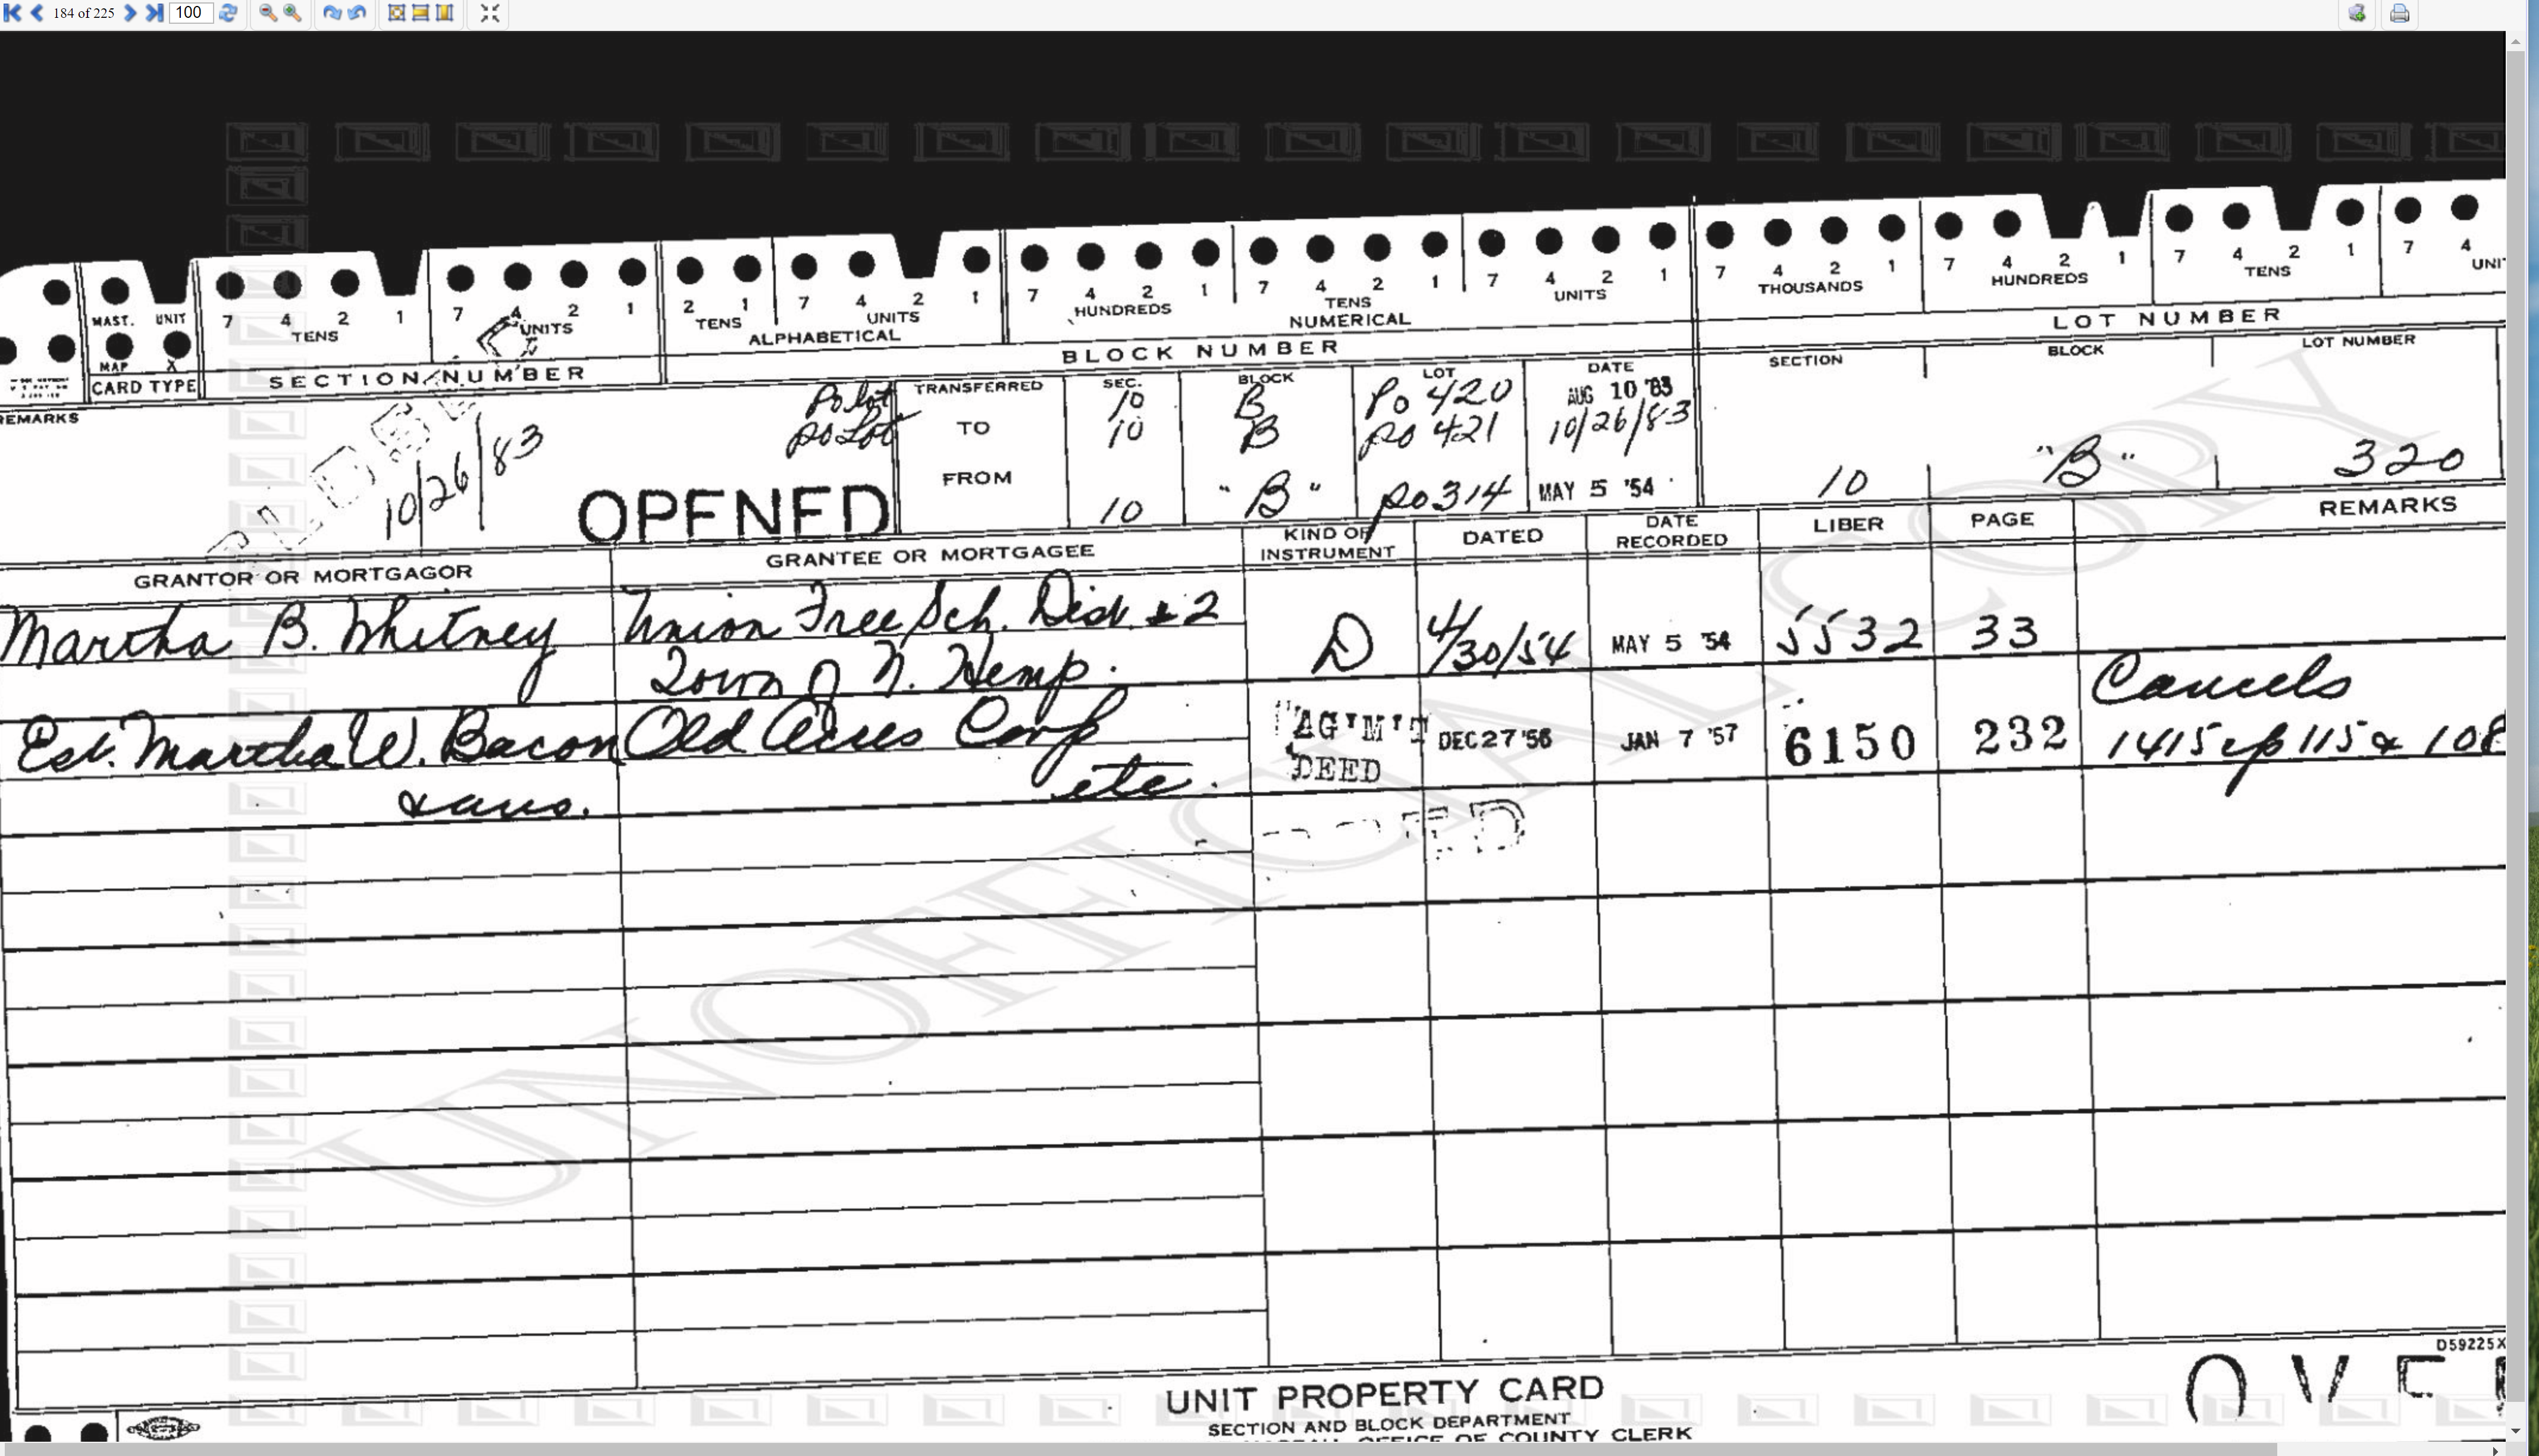 184 of 225 100
MAST. UNIT
7 4 2 1 7 4 2 1 2 1 7 4 2 1 7 4 2 1 7 4 2 1 7 4 2 1 7 4 2 1 7 4 2 1 7 4 2 1 7 4
TENS UNITS TENS UNITS HUNDREDS TENS UNITS THOUSANDS HUNDREDS TENS UNI
ALPHABETICAL NUMERICAL
MAP X
CARD TYPE SECTION NUMBER BLOCK NUMBER LOT NUMBER
REMARKS
TRANSFERRED SEC. BLOCK LOT DATE SECTION BLOCK LOT NUMBER
Po lot 10 B Po 420 AUG 10 '83
po Lot TO 10 B po 421 10/26/83
CLOSED
10/26/83
OPENED
FROM 10 "B" po 314 MAY 5 '54 10 "B" 320
GRANTOR OR MORTGAGOR GRANTEE OR MORTGAGEE KIND OF INSTRUMENT DATED DATE RECORDED LIBER PAGE REMARKS
Martha B. Whitney Union Free Sch. Dist. #2 D 4/30/54 MAY 5 '54 5532 33
Town of N. Hemp.
Est. Martha W. Bacon Old Acres Corp "AG'M'T DEC 27 '56 JAN 7 '57 6150 232 Cancels
1415 cp 115 & 108
& ano. etc. DEED
UNOFFICIAL COPY
D59225X
UNIT PROPERTY CARD
SECTION AND BLOCK DEPARTMENT
OFFICE OF COUNTY CLERK